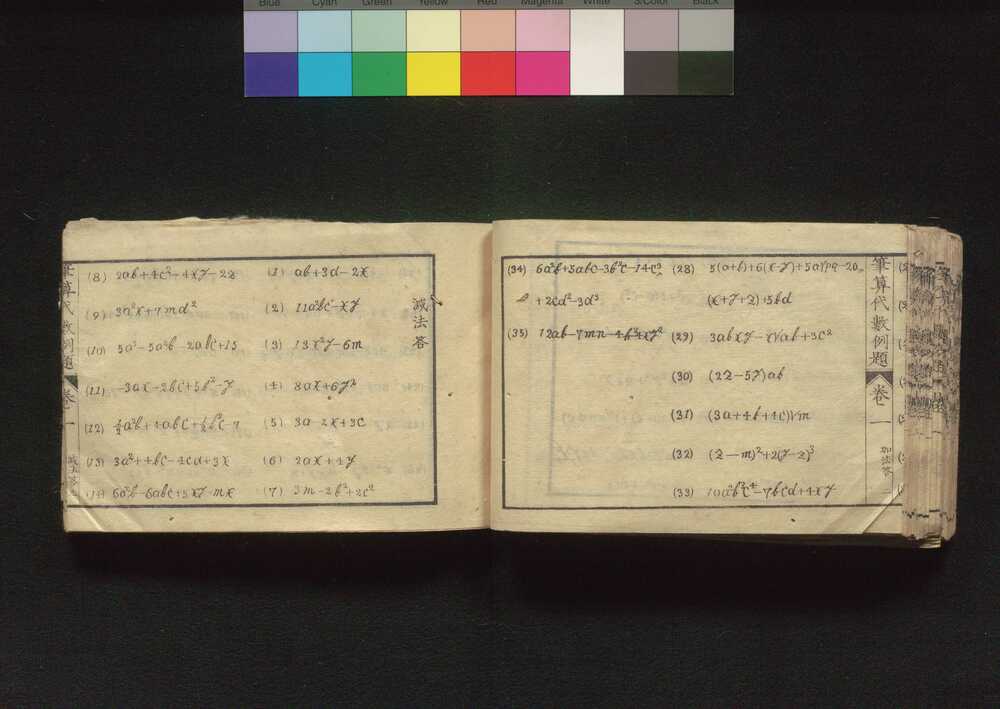 Blue Cyan Green Yellow Red Magenta White 3/Color Black
筆算代數例題 卷一 加法答 二
(28) 5(a+b)+6(x-y)+5a√pq-20
(x+y+z)+5bd
(29) 3abxy-x√ab+3c²
(30) (2z-5y)ab
(31) (3a+4b+4c)√m
(32) (z-m)²+2(y-z)³
(33) 10a²b²c⁴-7bcd+4xy
(34) 6a²b+5abc-3b²c-14c³
+2cd²-3d³
(35) 12ab-7mn-4b³+xy²
減法答
(1) ab+3d-2x
(2) 11a²bc-xy
(3) 13x²y-6m
(4) 8ax+6y²
(5) 3a-2x+3c
(6) 2ax+4y
(7) 3m-2b²+2c²
(8) 2ab+4c³-4xy-2z
(9) 3a²x+7md²
(10) 5a³-5a²b-2abc+15
(11) -3ax-2bc+5b²-y
(12)
(13) 3a²+4bc-4cd+3x
6a²b-6abc+5xy-mx
筆算代數例題 卷一 減法答